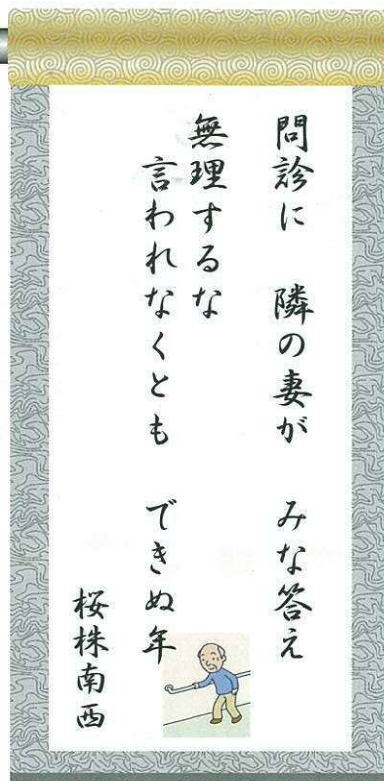 問診に　隣の妻が　みな答え
無理するな
言われなくとも　できぬ年
桜株南西